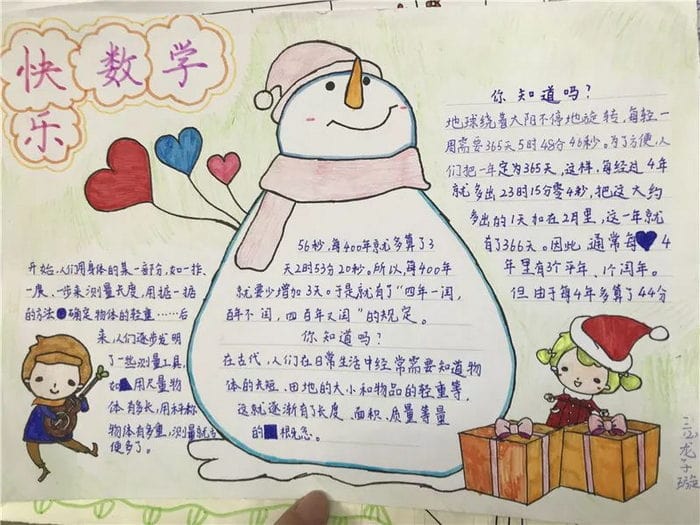 快乐数学
你知道吗？
地球绕着太阳不停地旋转，每轻一
周需要365天5时48分46秒。为了方便，人
们把一年定为365天，这样，每经过4年
就多出23时15分零4秒，把这大约
多出的1天扣在2月里，这一年就
有了366天。因此通常每4
年里有3个平年、1个闰年。
但由于每4年多算了44分
56秒，每400年就多算了3
天2时53分20秒。所以，每400年
就要少增加3天。于是就有了“四年一闰，
百年不闰，四百年又闰”的规定。
你知道吗？
在古代，人们在日常生活中经常需要知道物
体的长短、田地的大小和物品的轻重等，
这就逐渐有了长度、面积、质量等量
的概念。
开始，人们用身体的某一部分，如一拃、
一庹、一步来测量长度，用掂一掂
的方法确定物体的轻重……后
来，人们逐步发明
了一些测量工具，
如用尺量物
体有多长，用秤称
物体有多重，测量就方
便多了。
龙子璇